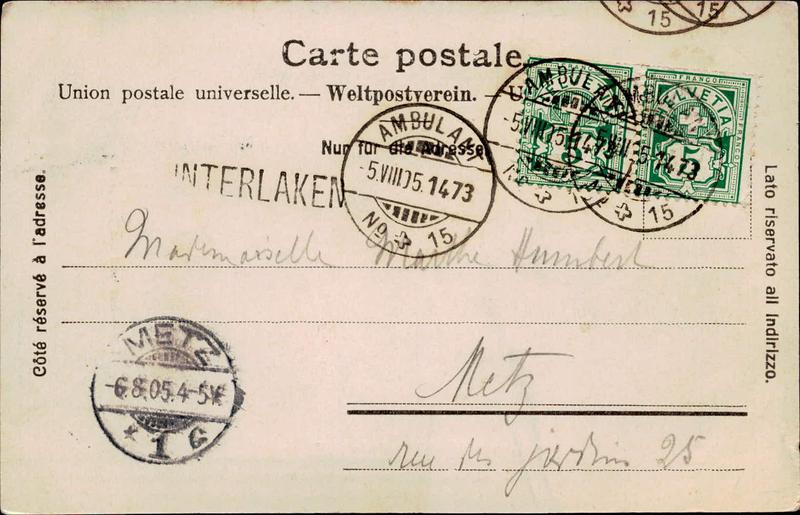 15
15
Carte postale.
Union postale universelle. — Weltpostverein. — U
Nur für die Adresse
AMBULANT
-5.VIII.05.1473
No 15
AMBULANT
-5.VIII.05.1473
No
AMBULANT
-5.VIII.05.1473
15
FRANCO
HELVETIA
5
5
INTERLAKEN
Côté réservé à l'adresse.
Lato riservato all indirizzo.
Mademoiselle Marthe Humbert
METZ
-6.8.05.4-5N.
* 1 c
Metz
rue des jardins 25